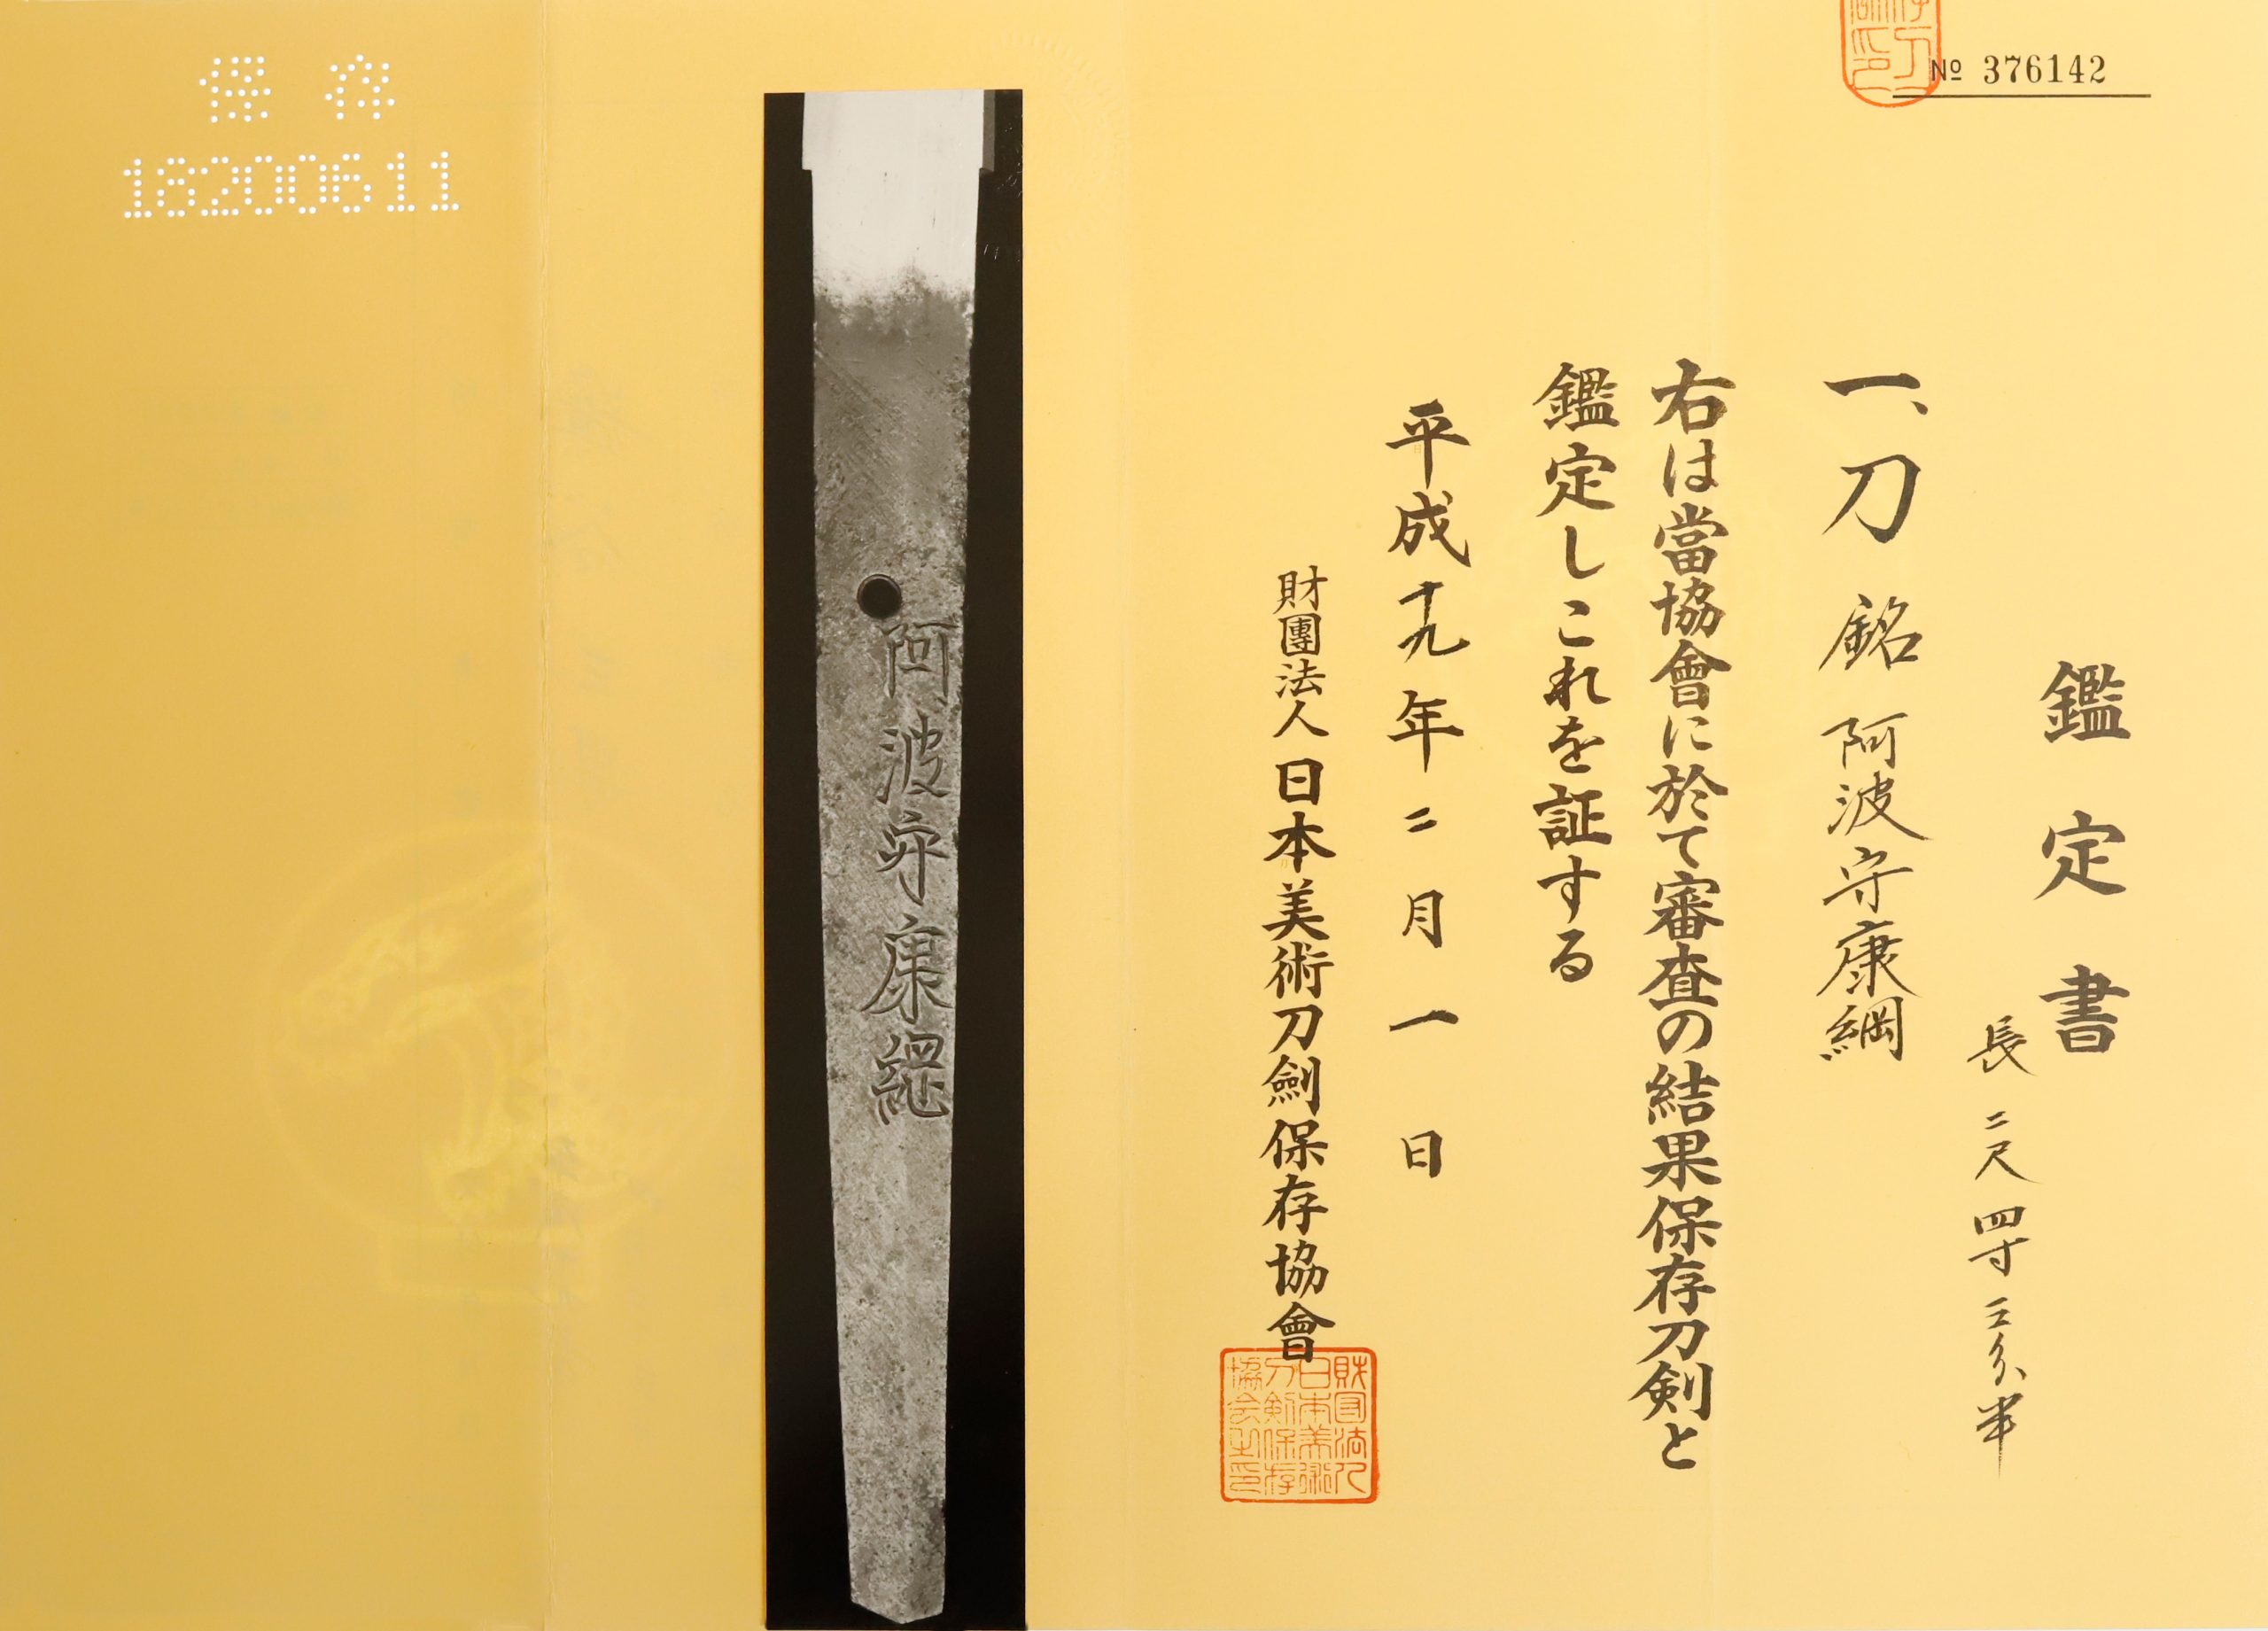 № 376142
鑑定書
長 二尺四寸三分半
一、刀 銘 阿波守康綱
右は當協會に於て審査の結果保存刀剣と
鑑定しこれを証する
平成十九年二月一日
財團法人日本美術刀劍保存協會
財団法人
日本美術
刀剣保存
協会之印
阿波守康綱
保存
18200611